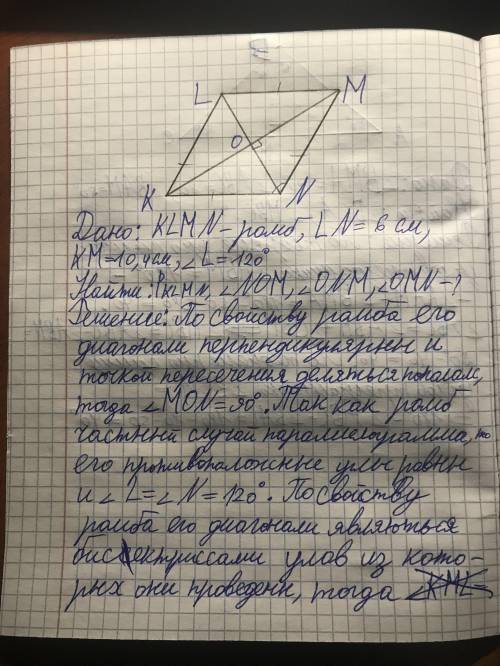 L
M
O
K
N
Дано: KLMN - ромб, LN = 6 см,
KM=10,4см, ∠L=120°
Найти: PKLMN, ∠NOM, ∠ONM, ∠OMN-?
Решение: По свойству ромба его
диагонали перпендикулярны и
точкой пересечения деляться пополам,
тогда ∠MON=90°. Так как ромб
частный случай параллелограмма, то
его противоположные углы равны
и ∠L=∠N=120°. По свойству
ромба его диагонали являються
биссектриссами улов из кото-
рых они проведенн, тогда ∠KML=